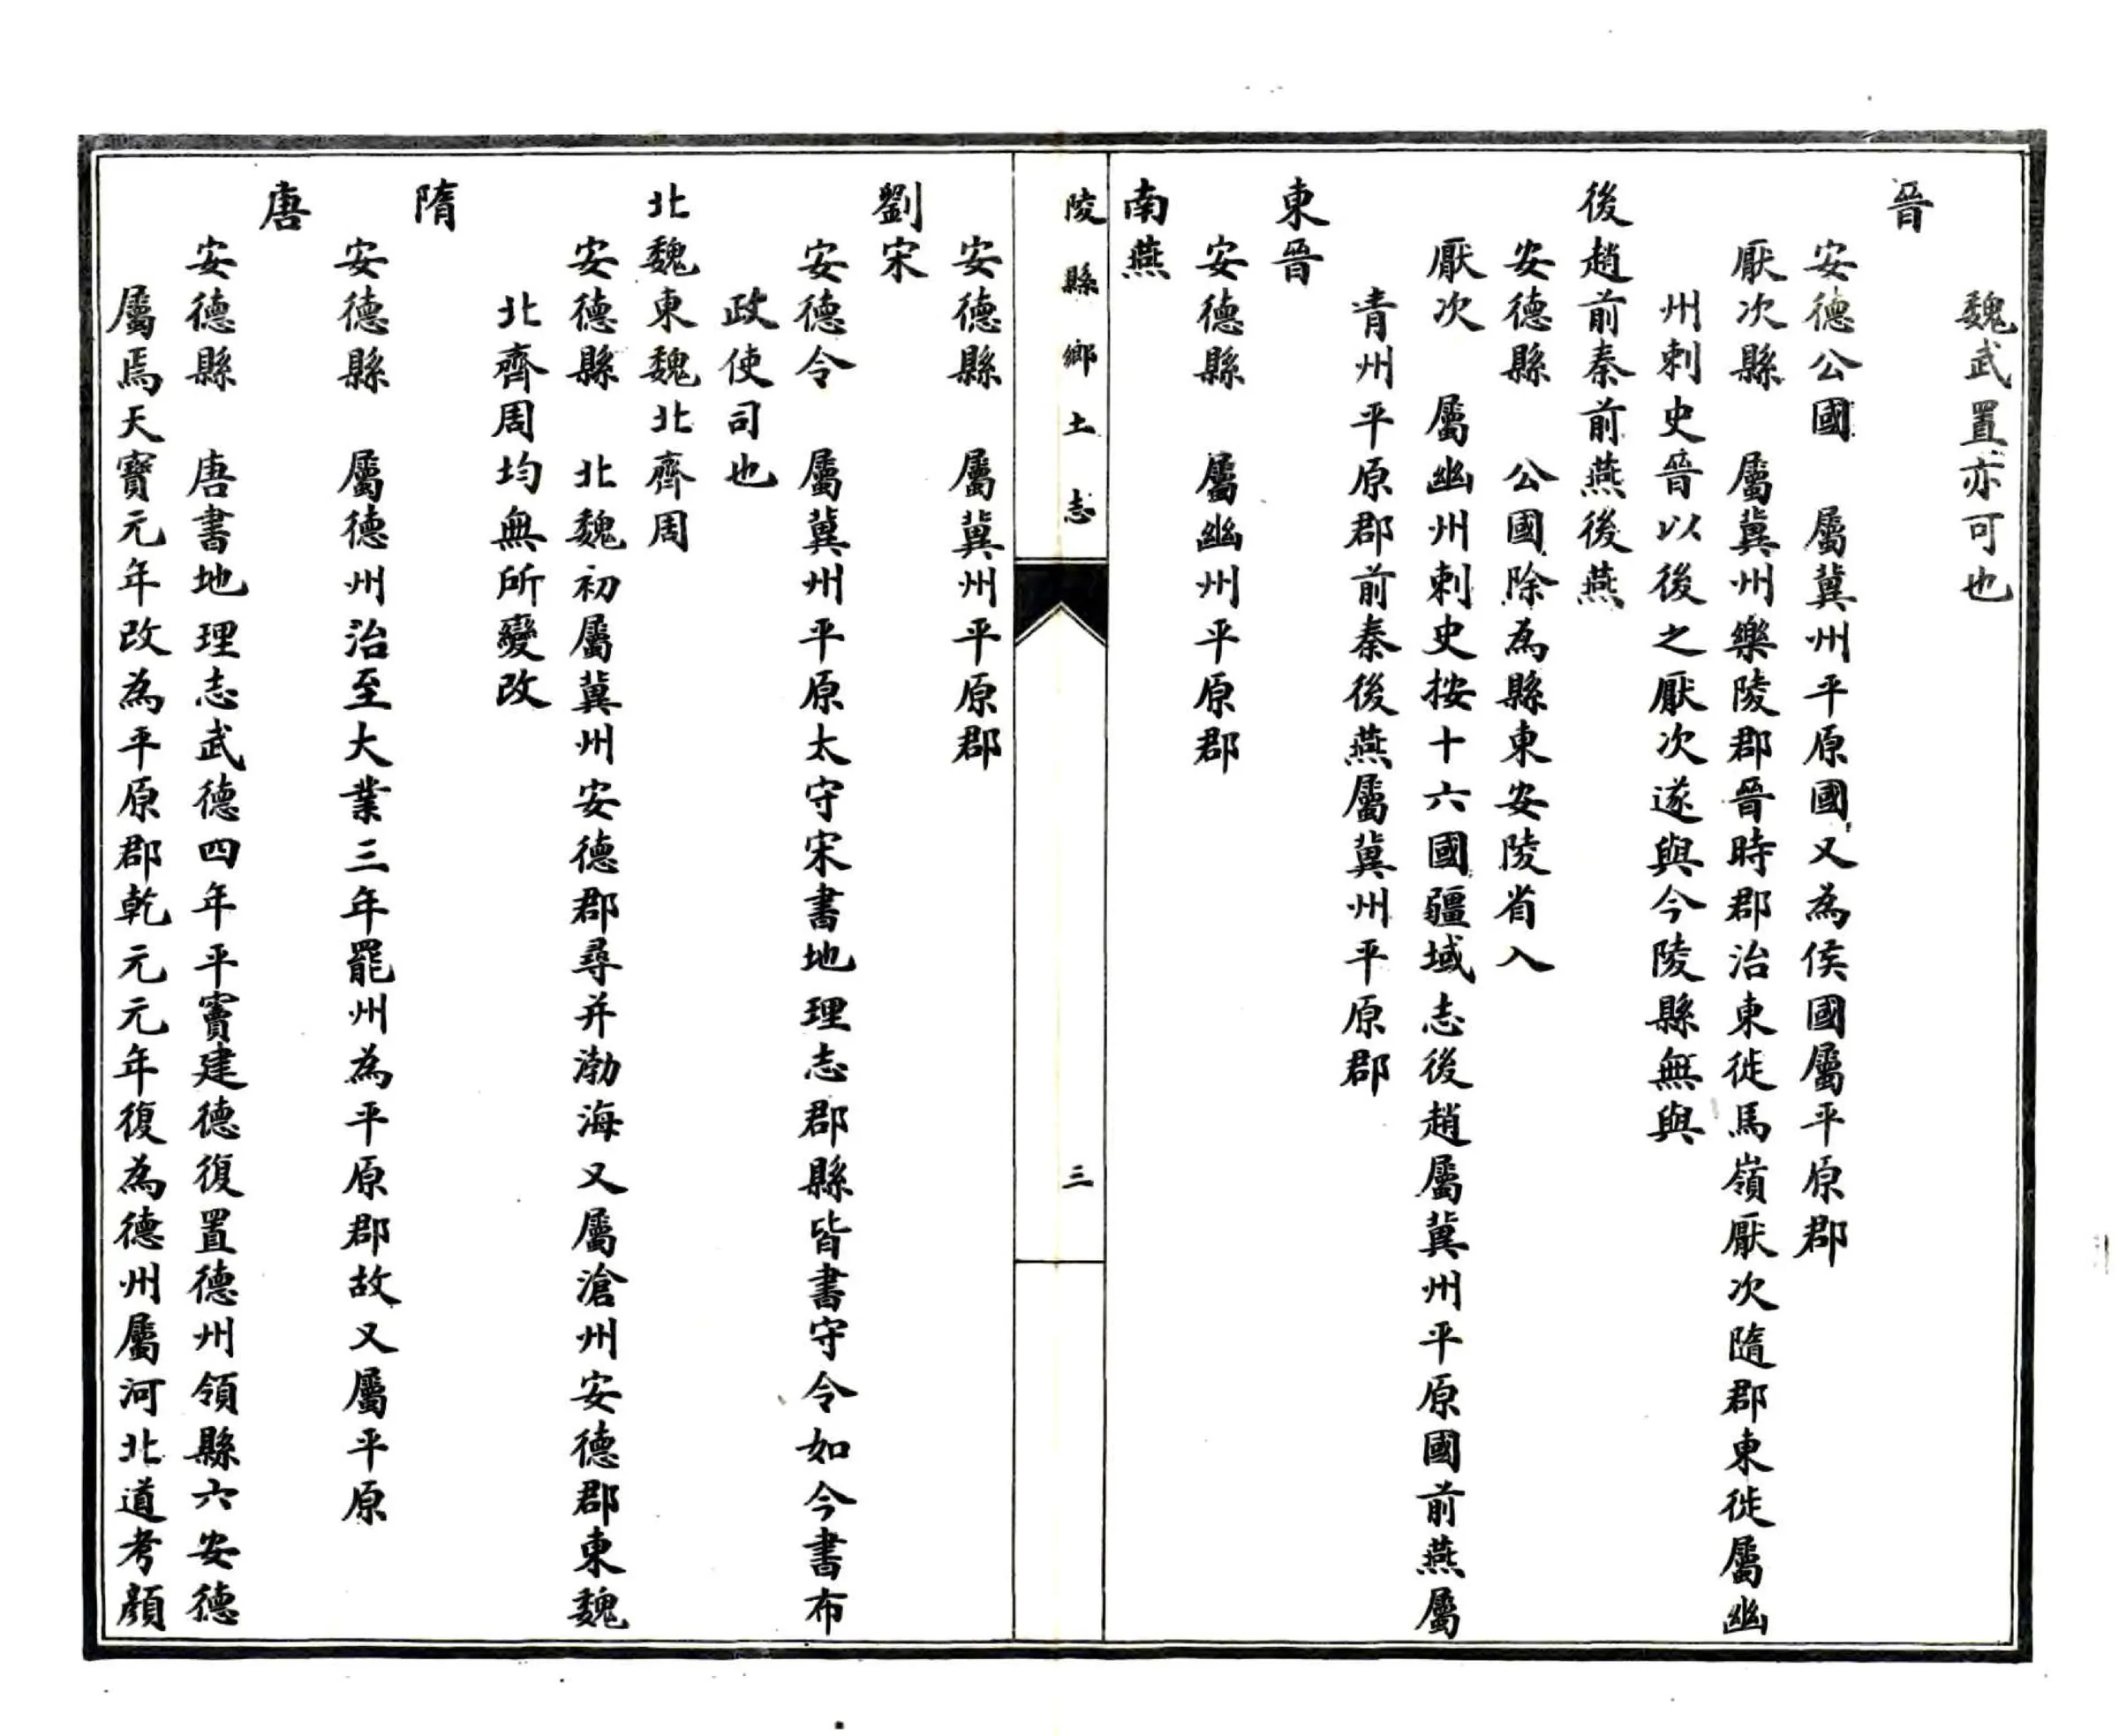 魏武置亦可也
晉
安德公國　屬冀州平原國又為侯國屬平原郡
厭次縣　屬冀州樂陵郡晉時郡治東徙馬嶺厭次隨郡東徙屬幽
州刺史晉以後之厭次遂與今陵縣無與
後趙前秦前燕後燕
安德縣　公國除為縣東安陵省入
厭次　屬幽州刺史按十六國疆域志後趙屬冀州平原國前燕屬
青州平原郡前秦後燕屬冀州平原郡
東晉
安德縣　屬幽州平原郡
南燕
陵縣鄉土志
三
安德縣　屬冀州平原郡
劉宋
安德令　屬冀州平原太守宋書地理志郡縣皆書守令如今書布
政使司也
北魏東魏北齊周
安德縣　北魏初屬冀州安德郡尋并渤海又屬滄州安德郡東魏
北齊周均無所變改
隋
安德縣　屬德州治至大業三年罷州為平原郡故又屬平原
唐
安德縣　唐書地理志武德四年平竇建德復置德州領縣六安德
屬焉天寶元年改為平原郡乾元元年復為德州屬河北道考顏